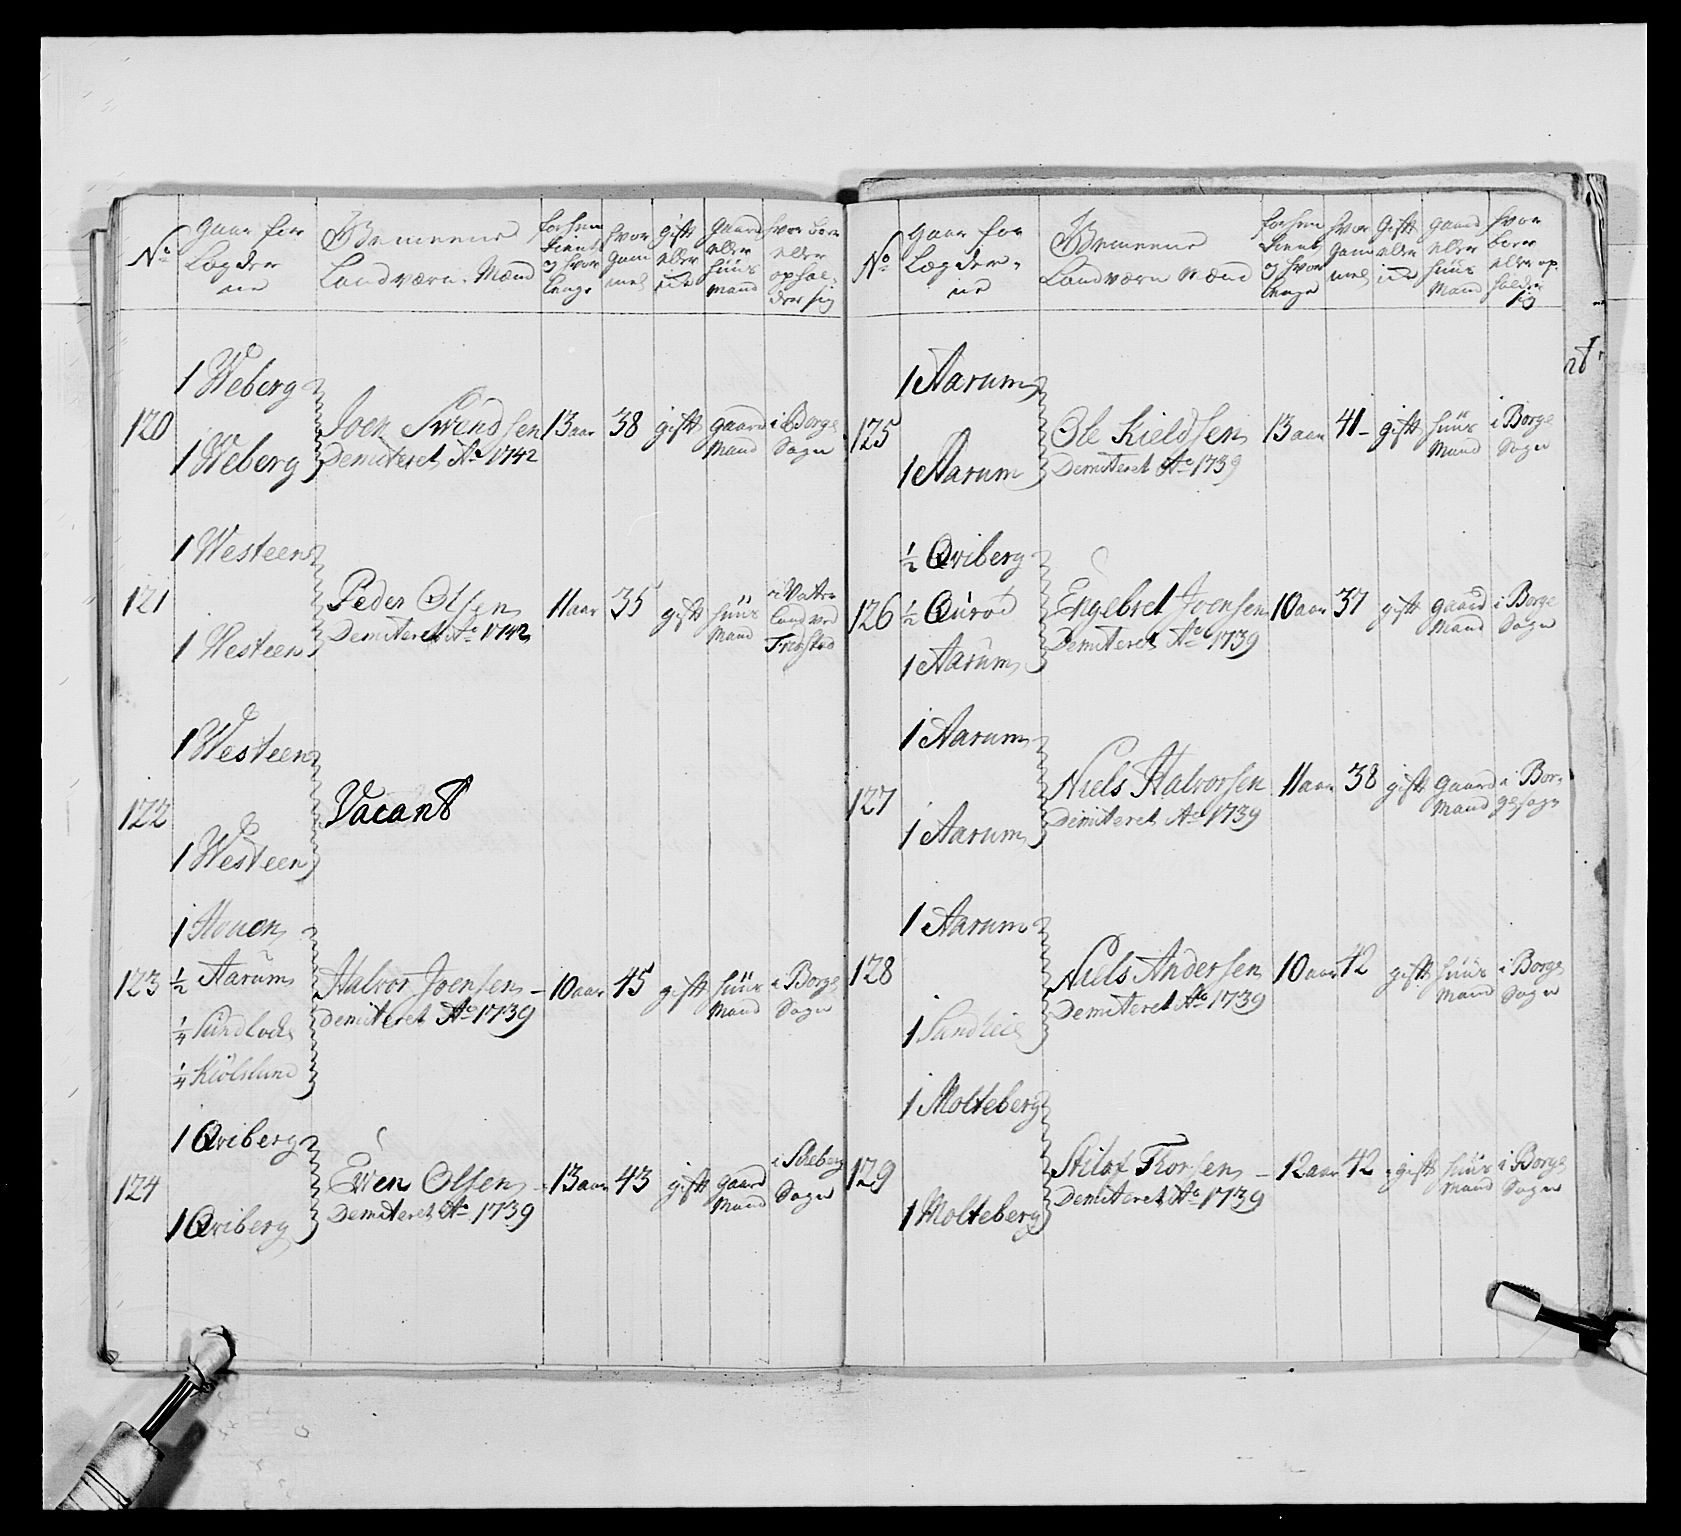 No
Gaar for
Lægder
ne
Gemeene
Landværn. Mænd
forhen
tient
og hvor
lenge
hvor
gam
mel
gift
eller
ei
gaard
eller
huus
mand
hvor boer
eller
ophol
der sig
1 Weberg
120
1 Weberg
Joen Svendsen 13 aar 38 gift gaard i Borge
Demiteret Ao 1742 Mand Sogn
1 Westeen
121
1 Westeen
Peder Olsen 11 aar 35 gift huus
Demiteret Ao 1742 Mand
1 Westeen
122 Vacant
1 Westeen
1 Houen
123 1/2 Aarum Halvor Joensen 10 aar 45 gift huus i Borge
Demiteret Ao 1739 Mand Sogn
1/4
1/4 Kiölslund
1 Qviberg
124 Even Olsen 13 aar 43 gift gaard i Skeberg
Demiteret Ao 1739 Mand Sogn
1 Qviberg
No
Gaar for
Lægder
ne
Gemeene
Landværn Mænd
forhen
tient
og hvor
lenge
hvor
gam
mel
Gift
eller
ei
gaard
eller
huus
Mand
hvor
boer
eller op
holder
sig
1 Aarum
125 Ole Kieldsen 13 aar 41 gift huus i Borge
Demiteret Ao 1739 Mand Sogn
1 Aarum
1/2 Qviberg
126 1/2 Ourød Engebret Joensen 10 aar 37 gift gaard i Borge
Demiteret Ao 1739 Mand Sogn
1 Aarum
1 Aarum
127 Niels Halvorsen 11 aar 38 gift gaard i Bor-
Demiteret Ao 1739 Mand gesogn
1 Aarum
1 Aarum
128 Niels Andersen 10 aar 42 gift huus i Borge
Demiteret Ao 1739 Mand Sogn
1
1 Molteberg
129 Thorsen 12 aar 42 gift huus i Borge
Demiteret Ao 1739 Mand Sogn
1 Molteberg